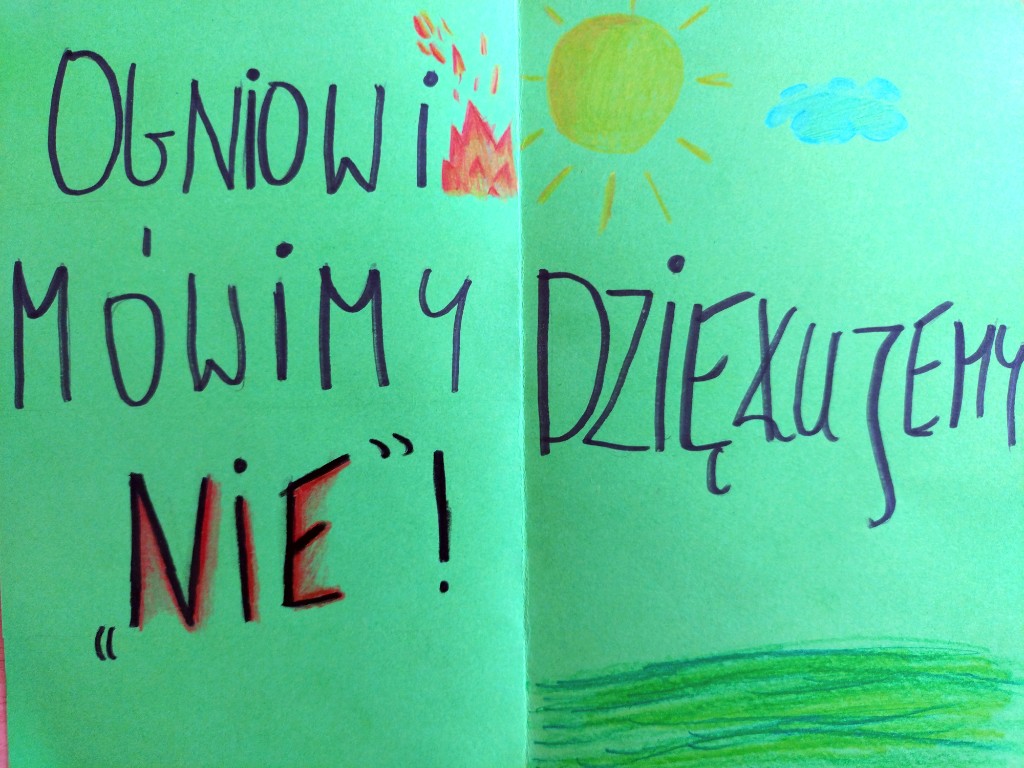 OGNiOWi
MÓWiMY
„NiE”!
DZiĘKUJEMY